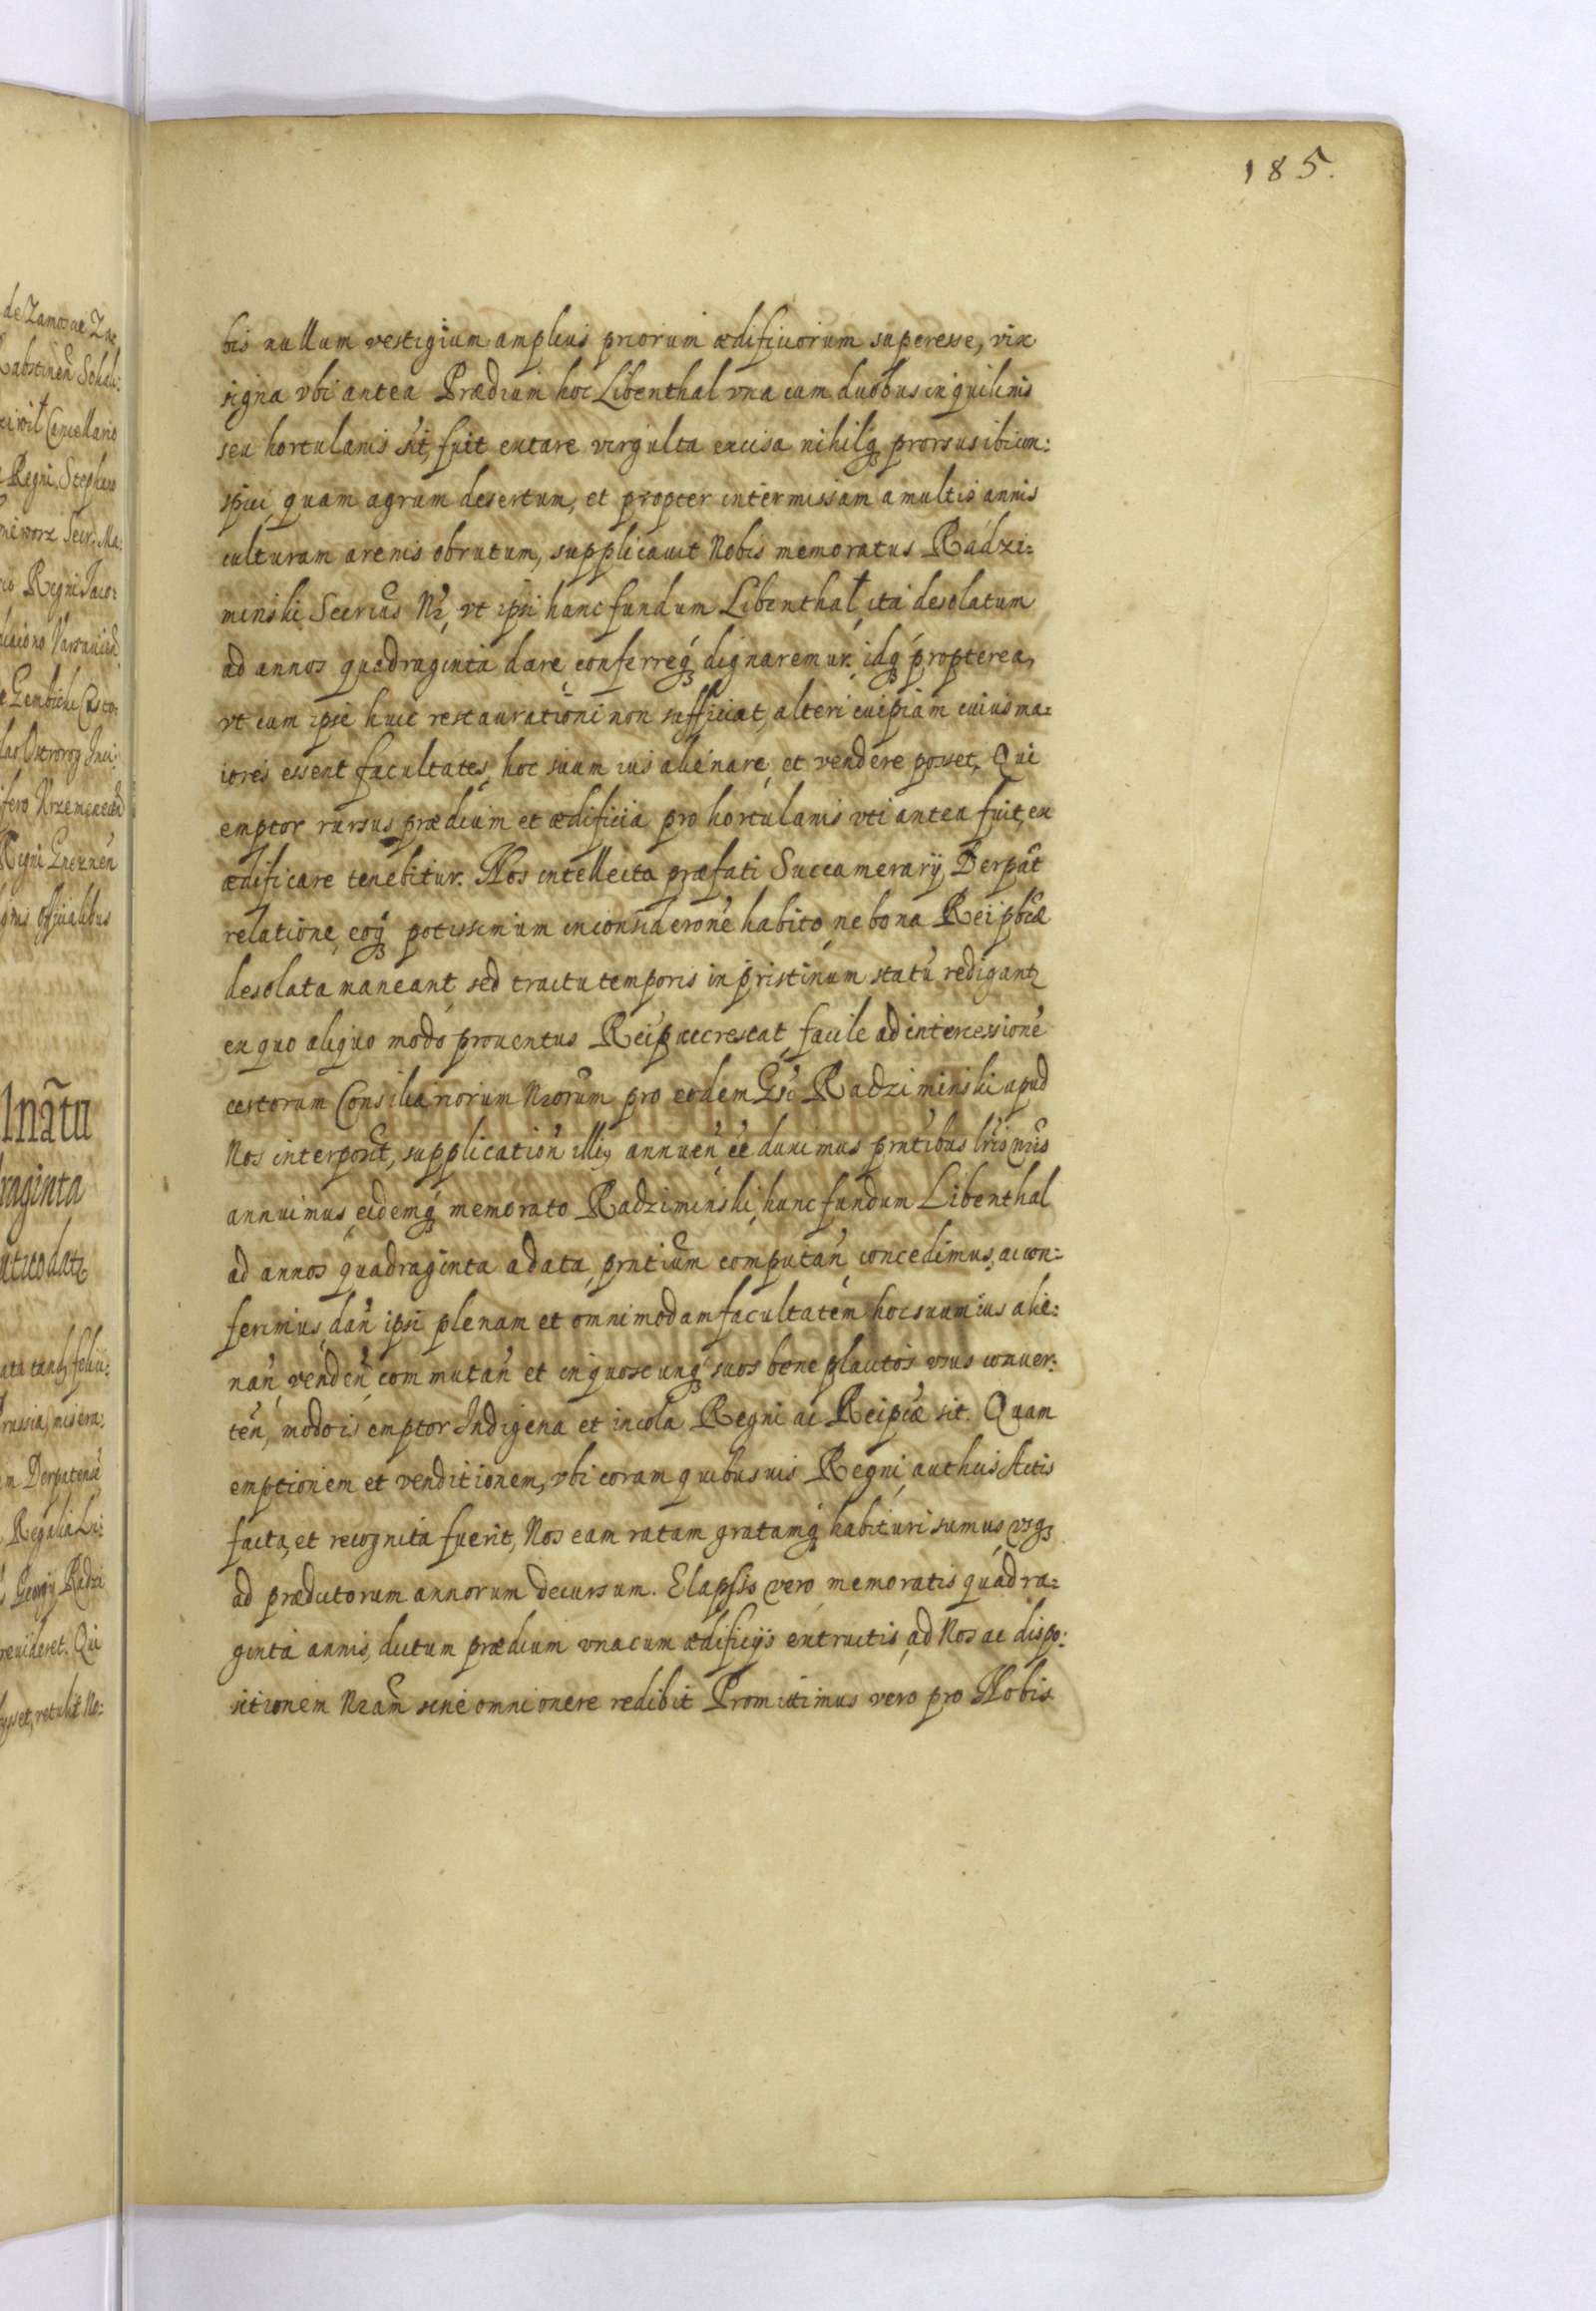 185.
bis nullum vestigium amplius priorum ædificiorum superesse, vix
signa vbi antea Prædium hoc Libenthal vna cum duobus inquilinis
seu hortulanis sit, fuit extare virgulta excisa nihilq3 prorsus ibi con:
spici quam agrum desertum, et propter intermissam a multis annis
culturam arenis obrutum, supplicauit Nobis memoratus Radzi:
minski Secrius Nr, vt ipsi hanc fundum Libenthal, ita desolatum
ad annos quadraginta dare conferreq3 dignaremur. idq3 propterea,
vt cum ipse huic restaurationi non sufficiat, alteri cuipiam cuius ma:
iores essent facultates, hoc suum ius alienare, et vendere posset. Qui
emptor rursus prædium et ædificia pro hortulanis vti antea fuit, ex
ædificare tenebitur. Nos intellecta præfati Succamerarij Derpat
relatione, eoq3 potissimum in considerone habito, ne bona Reipbcæ
desolata maneant, sed tractu temporis in pristinum statu redigant
ex quo aliquo modo prouentus Reip accrescat, facile ad intercessione
certorum Consiliariorum Nrorum pro eodem Gso Radziminski apud
Nos interposit, supplication illius annuen ee duximus prntibus lris nris
annuimus, eidemq3 memorato Radziminski, hunc fundum Libenthal
ad annos quadraginta a data prntium computan, concedimus, ac con:
ferimus, dan ipsi plenam et omnimodam facultatem hoc suum ius alie:
nan, venden, commutan et in quoscunq3 suos beneplacitos vsus conuer:
ten, modo is emptor Indigena et incola Regni ac Reipcæ sit. Quam
emptionem et venditionem, vbi coram quibusuis Regni authcis Actis
facta, et recognita fuerit, Nos eam ratam gratamq3 habituri sumus, vsq3
ad prædictorum annorum decursum. Elapsis vero memoratis quadra:
ginta annis, dictum prædium vna cum ædificijs extructis, ad Nos ac dispo:
sitionem Nram sine omni onere redibit Promittimus vero pro Nobis